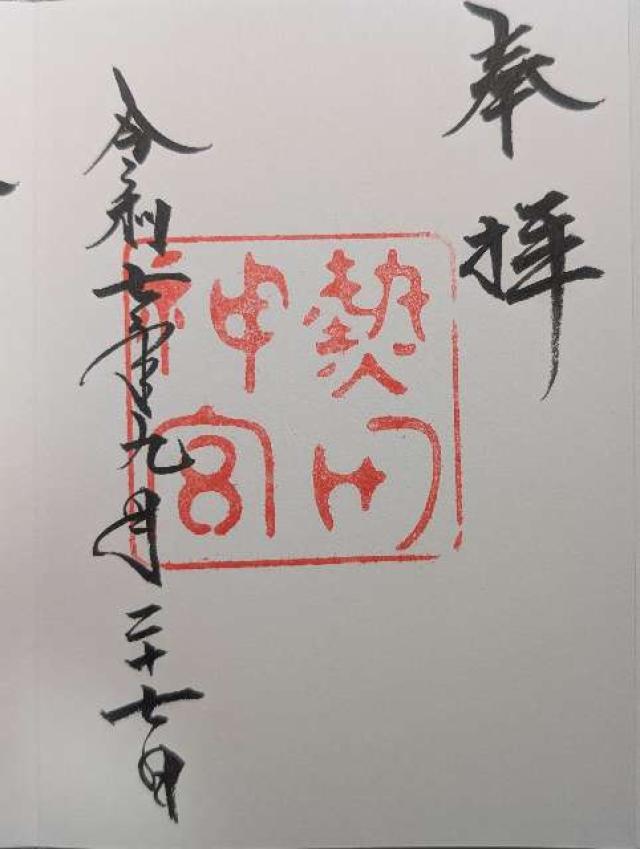 奉拝
熱田
神宮
令和七年九月二十七日